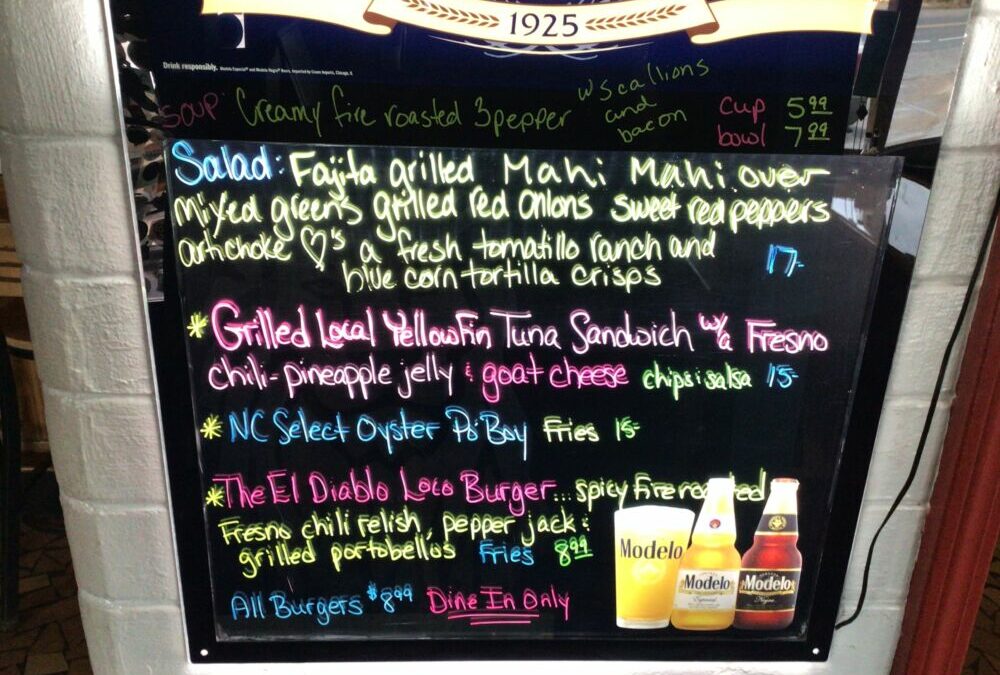 1925
Drink responsibly.
Soup Creamy fire roasted 3pepper w scallions and bacon cup 5.99
bowl 7.99
Salad: Fajita grilled Mahi Mahi over
mixed greens grilled red onions sweet red peppers
artichoke ♡'s a fresh tomatillo ranch and 17-
blue corn tortilla crisps
* Grilled Local Yellowfin Tuna Sandwich w/a Fresno
chili-pineapple jelly & goat cheese chips & salsa 15-
* NC Select Oyster Po'Boy Fries 15-
* The El Diablo Loco Burger... spicy fire roasted
Fresno chili relish, pepper jack &
grilled portobellos Fries 8.99
All Burgers $8.99 Dine In Only
Modelo
Modelo
Especial
Modelo
Negra